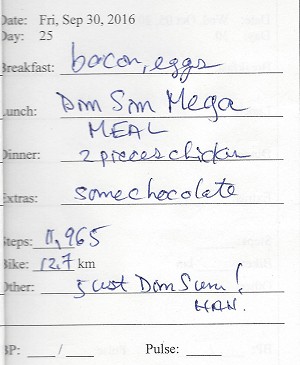 Date: Fri, Sep 30, 2016
Day: 25
Breakfast: bacon, eggs
Lunch: Dim Sim Mega
MEAL
Dinner: 2 pieces chicken
Extras: some chocolate
Steps: 11,965
Bike: 12.7 km
Other: Dim Sum!
BP: ___ / ___ Pulse: ___